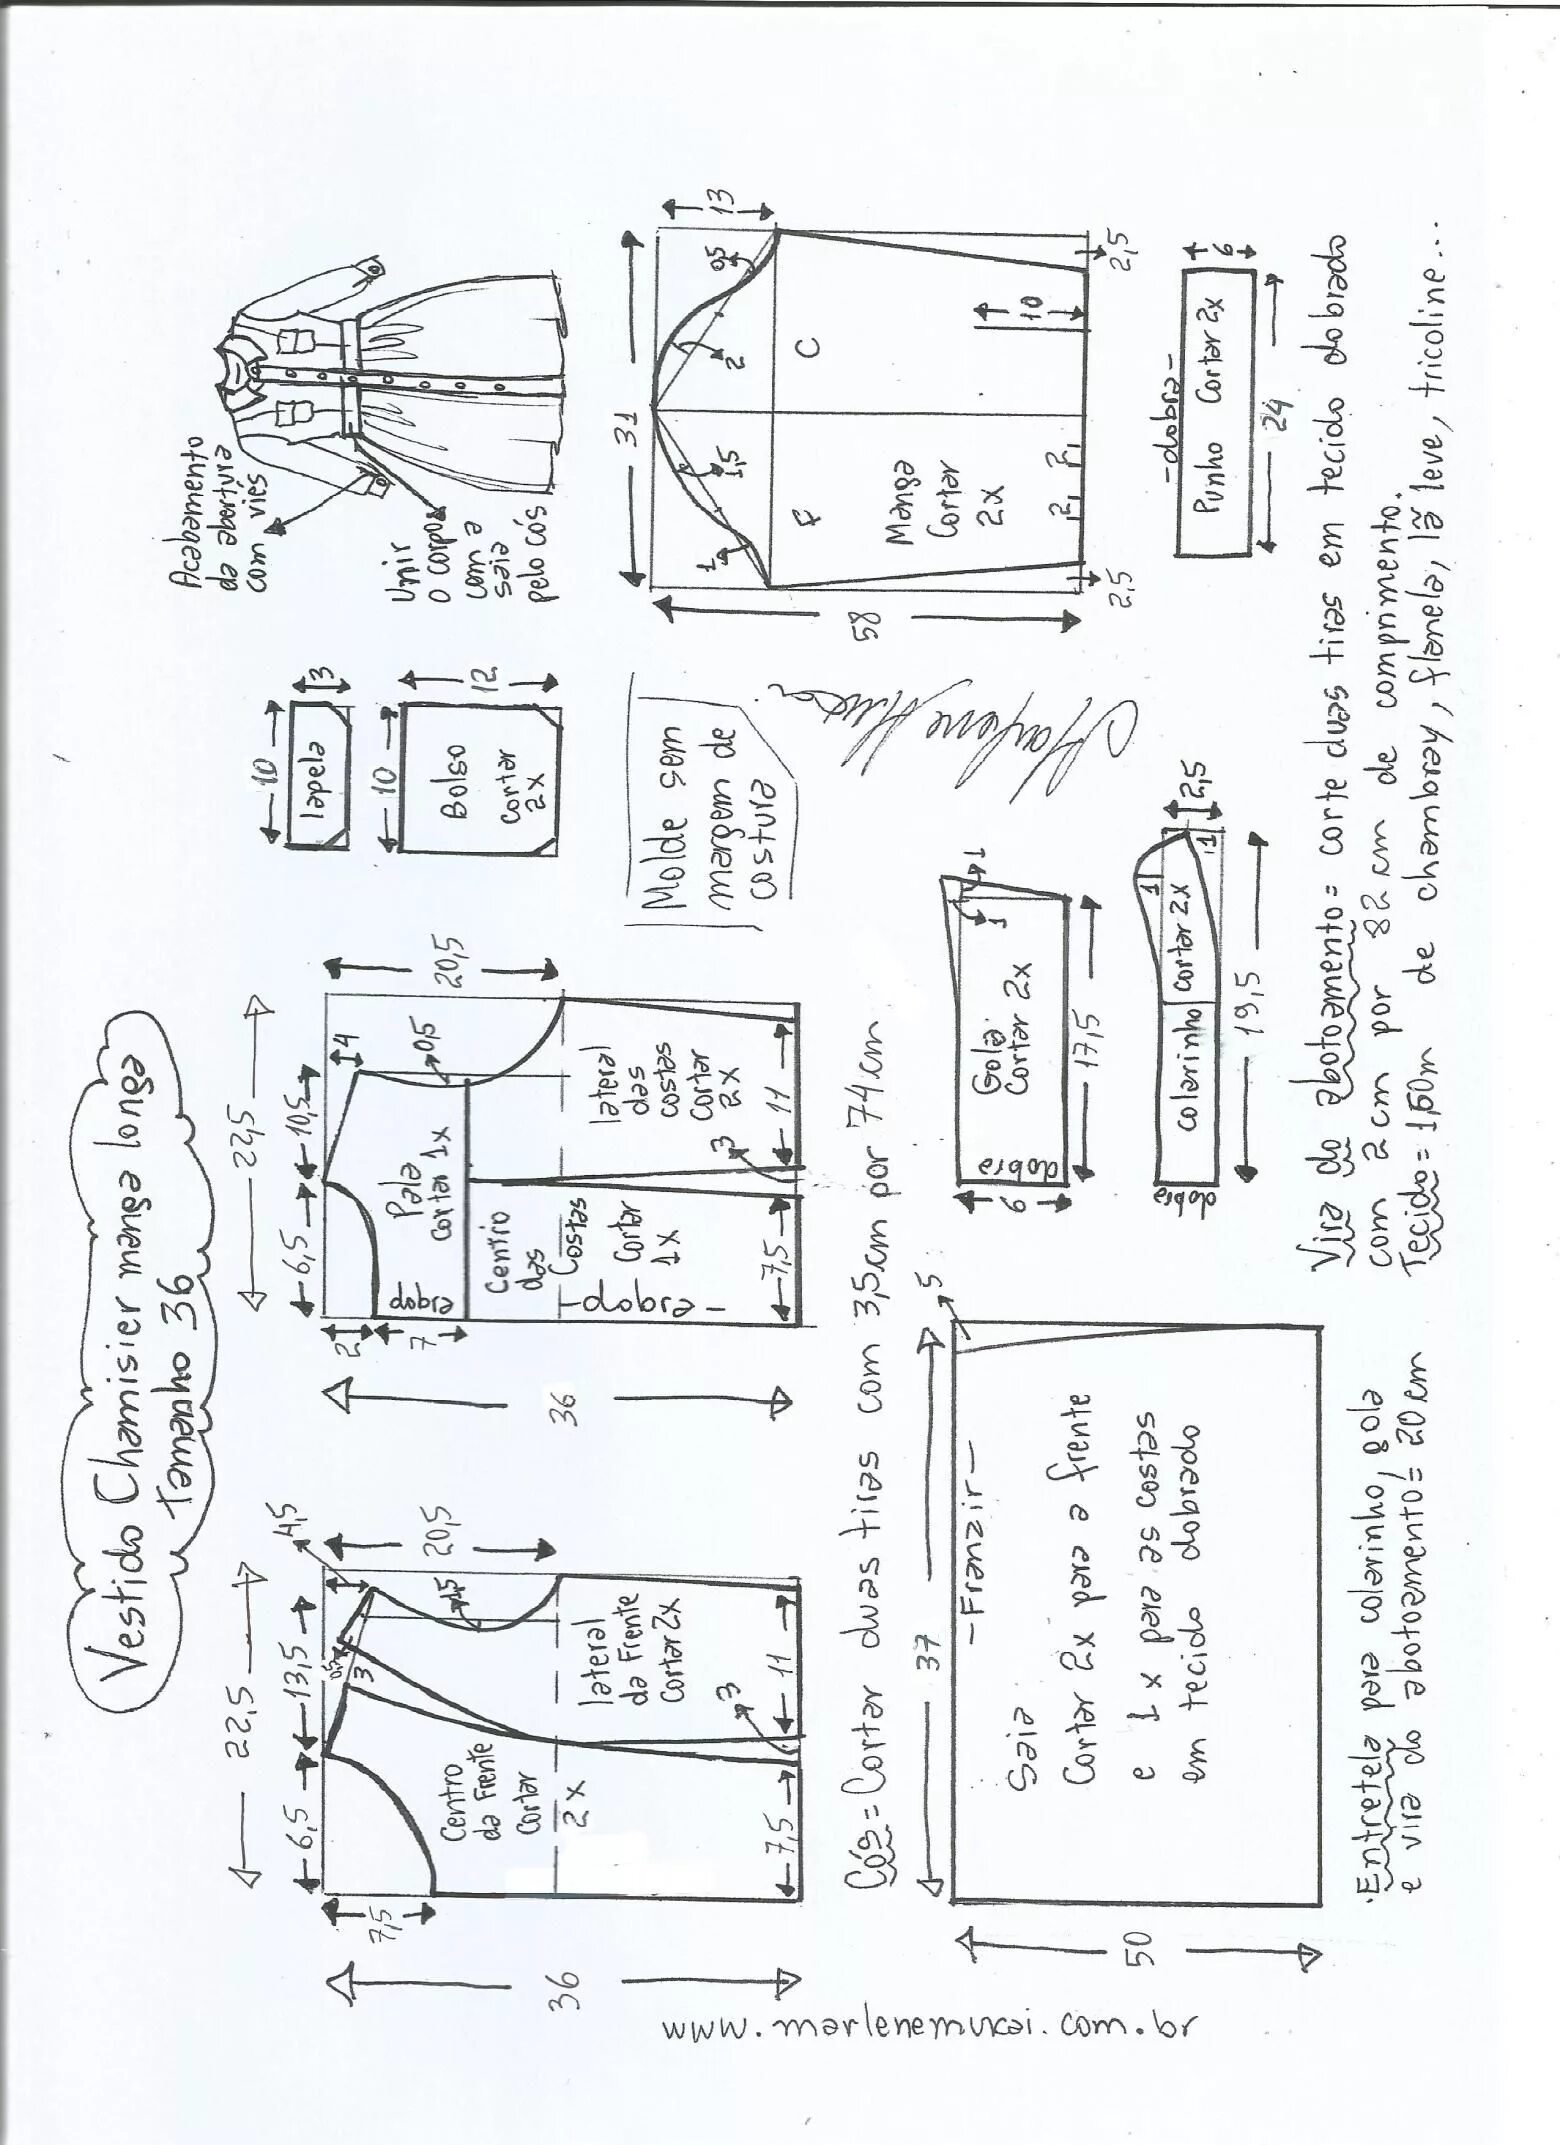 Vestido Chamisier manga longa
Tamanho 36
22,5
6,5
13,5
4,5
7,5
36
20,5
0,5
3
1,5
Centro
da Frente
Cortar
2x
lateral
da Frente
Cortar 2x
7,5
3
11
22,5
6,5
10,5
4
2
7
36
20,5
0,5
dobra
Pala
cortar 1x
Centro
das
Costas
Cortar
1x
-dobra-
lateral
das
costas
Cortar
2x
7,5
3
11
10
3
lapela
10
12
Bolso
cortar
2x
Molde sem
margem de
costura
Acabamento
da abertura
com viés
Unir
o corpo
com a
saia
pelo cós
31
13
58
1
1,5
2
0,5
F
C
Manga
Cortar
2x
2
2
10
2,5
2,5
-dobra-
Punho Cortar 2x
6
24
Marlene Mukai
Cós = Cortar duas tiras com 3,5cm por 74cm
37
5
-Franzir-
Saia
Cortar 2x para a frente
e 1x para as costas
em tecido dobrado
50
Gola
Cortar 2x
dobra
9
17,5
1
1
colarinho cortar 2x
dobra
1
1
2,5
19,5
Vira do abotoamento = corte duas tiras em tecido dobrado
com 2 cm por 82 cm de comprimento.
Tecido = 1,60m de chambray, flanela, lã leve, tricoline...
.Entretela para colarinho, gola
e vira do abotoamento = 20cm
www.marlenemukai.com.br